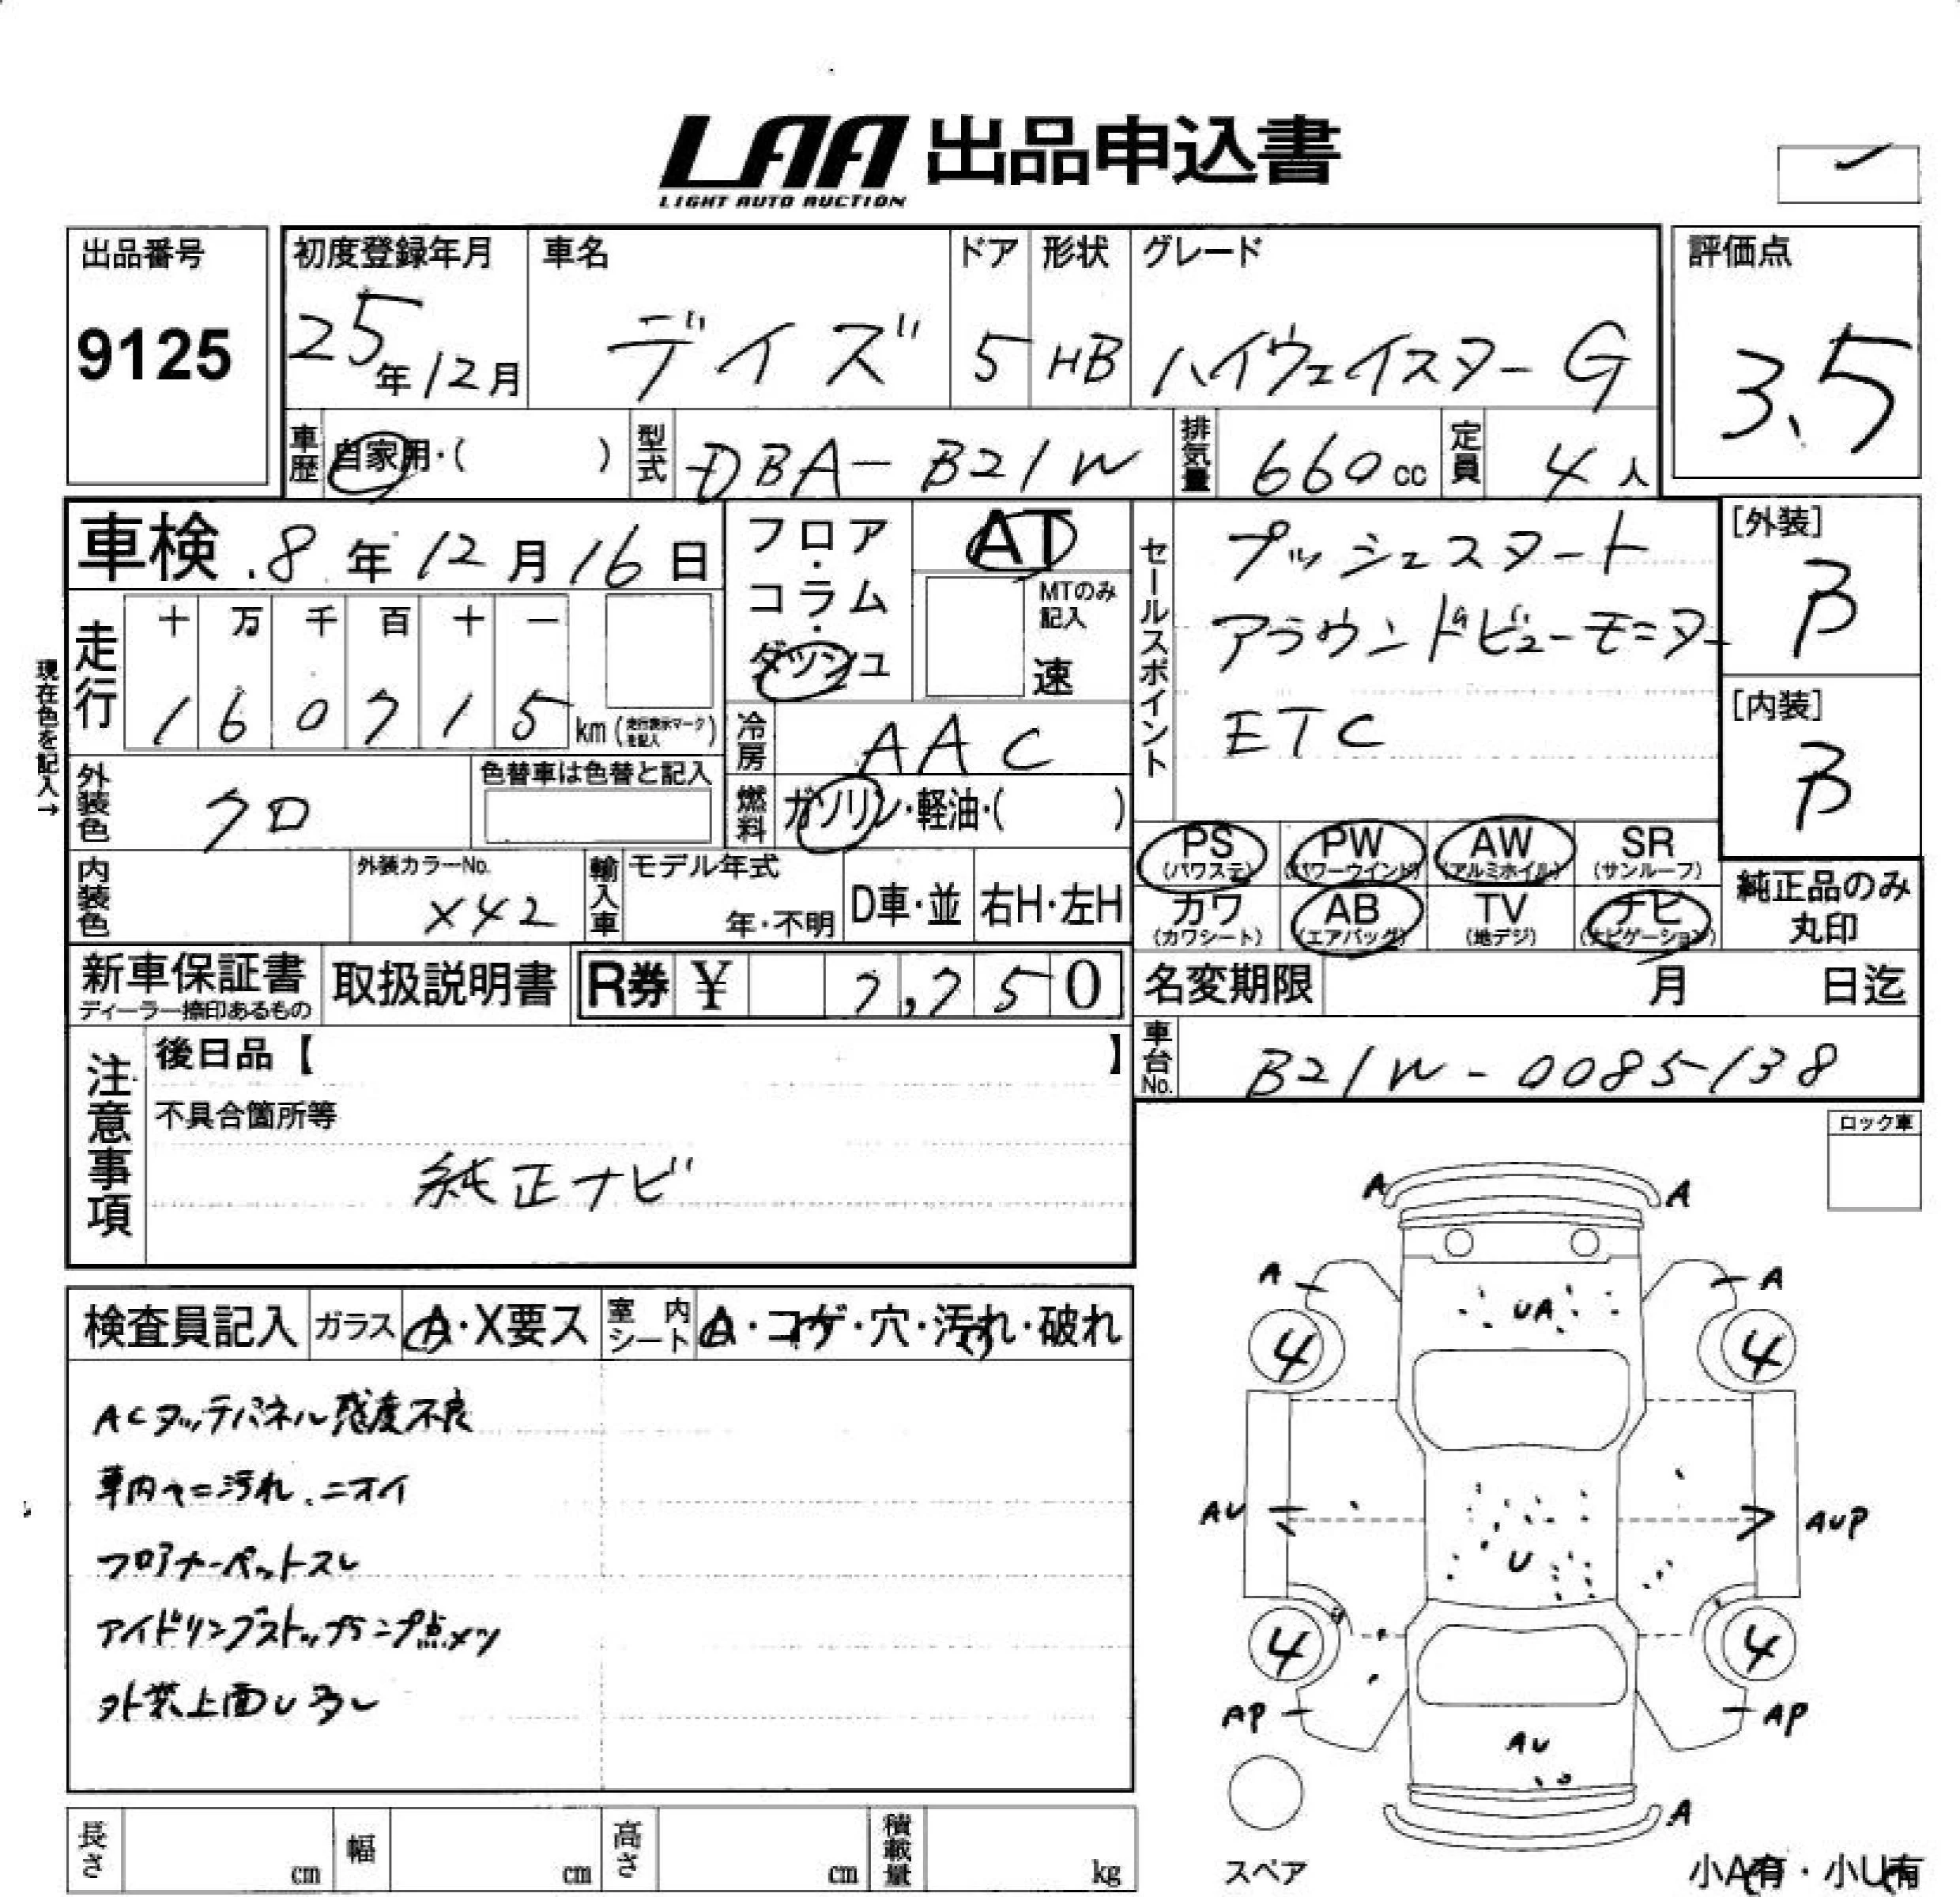 LAA 出品申込書
LIGHT AUTO AUCTION
出品番号
9125
初度登録年月
25年12月
車名
デイズ
ドア
5
形状
HB
グレード
ハイウェイスター G
評価点
3.5
車歴 自家用・( )
型式 DBA-B21W
排気量 660cc
定員 4人
車検 8年12月16日
フロア・コラム・ダッシュ
AT
MTのみ記入
速
現在色を記入→
走行
十 万 千 百 十 一
1 6 0 7 1 5 km (走行表示マークを記入)
冷房 AAC
外装色 クロ
色替車は色替と記入
燃料 ガソリン・軽油・( )
内装色
外装カラーNo.
X42
輸入車
モデル年式
年・不明
D車・並
右H・左H
セールスポイント
プッシュスタート
アラウンドビューモニター
ETC
[外装]
B
[内装]
B
PS (パワステ)
PW (パワーウインド)
AW (アルミホイル)
SR (サンルーフ)
カワ (カワシート)
AB (エアバッグ)
TV (地デジ)
ナビ (ナビゲーション)
純正品のみ
丸印
新車保証書
ディーラー捺印あるもの
取扱説明書
R券 ¥ 7,750
名変期限 月 日迄
車台No. B21W-0085138
注意事項
後日品【 】
不具合箇所等
純正ナビ
ロック車
検査員記入
ガラス A・X要ス
室内シート A・コゲ・穴・汚れ・破れ
ACタッチパネル感度不良
車内ヤニ汚れ、ニオイ
フロアカーペットスレ
アイドリングストップランプ点メツ
外装上面U多し
A A
A A
UA
4 4
AU AUP
U
4 4
AP AP
AU
A
スペア
小A有・小U有
長さ cm
幅 cm
高さ cm
積載量 kg